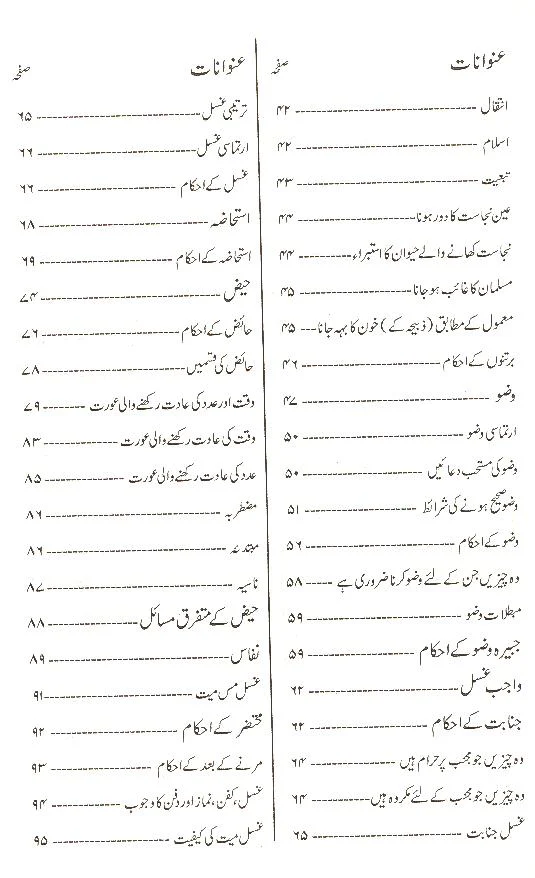 عنوانات صفحہ
انتقال ---------- ۴۲
اسلام ---------- ۴۲
تبعیت ---------- ۴۳
عین نجاست کا دور ہونا ---------- ۴۴
نجاست کھانے والے حیوان کا استبراء ---------- ۴۴
مسلمان کا غائب ہو جانا ---------- ۴۵
معمول کے مطابق (ذبیحہ کے) خون کا بہہ جانا --- ۴۵
برتنوں کے احکام ---------- ۴۶
وضو ---------- ۴۷
ارتماسی وضو ---------- ۵۰
وضو کی مستحب دعائیں ---------- ۵۰
وضو صحیح ہونے کی شرائط ---------- ۵۱
وضو کے احکام ---------- ۵۶
وہ چیزیں جن کے لئے وضو کرنا ضروری ہے ----- ۵۸
مبطلات وضو ---------- ۵۹
جبیرہ وضو کے احکام ---------- ۵۹
واجب غسل ---------- ۶۲
جنابت کے احکام ---------- ۶۲
وہ چیزیں جو مجنب پر حرام ہیں ---------- ۶۴
وہ چیزیں جو مجنب کے لئے مکروہ ہیں ---------- ۶۴
غسل جنابت ---------- ۶۵
عنوانات صفحہ
ترتیبی غسل ---------- ۶۵
ارتماسی غسل ---------- ۶۶
غسل کے احکام ---------- ۶۶
استحاضہ ---------- ۶۸
استحاضہ کے احکام ---------- ۶۹
حیض ---------- ۷۴
حائض کے احکام ---------- ۷۶
حائض کی قسمیں ---------- ۷۸
وقت اور عدد کی عادت رکھنے والی عورت -------- ۷۹
وقت کی عادت رکھنے والی عورت ---------- ۸۳
عدد کی عادت رکھنے والی عورت ---------- ۸۵
مضطربہ ---------- ۸۶
مبتدئہ ---------- ۸۶
ناسیہ ---------- ۸۷
حیض کے متفرق مسائل ---------- ۸۸
نفاس ---------- ۸۹
غسل مس میت ---------- ۹۱
محتضر کے احکام ---------- ۹۲
مرنے کے بعد کے احکام ---------- ۹۳
غسل، کفن، نماز اور دفن کا وجوب ---------- ۹۴
غسل میت کی کیفیت ---------- ۹۵